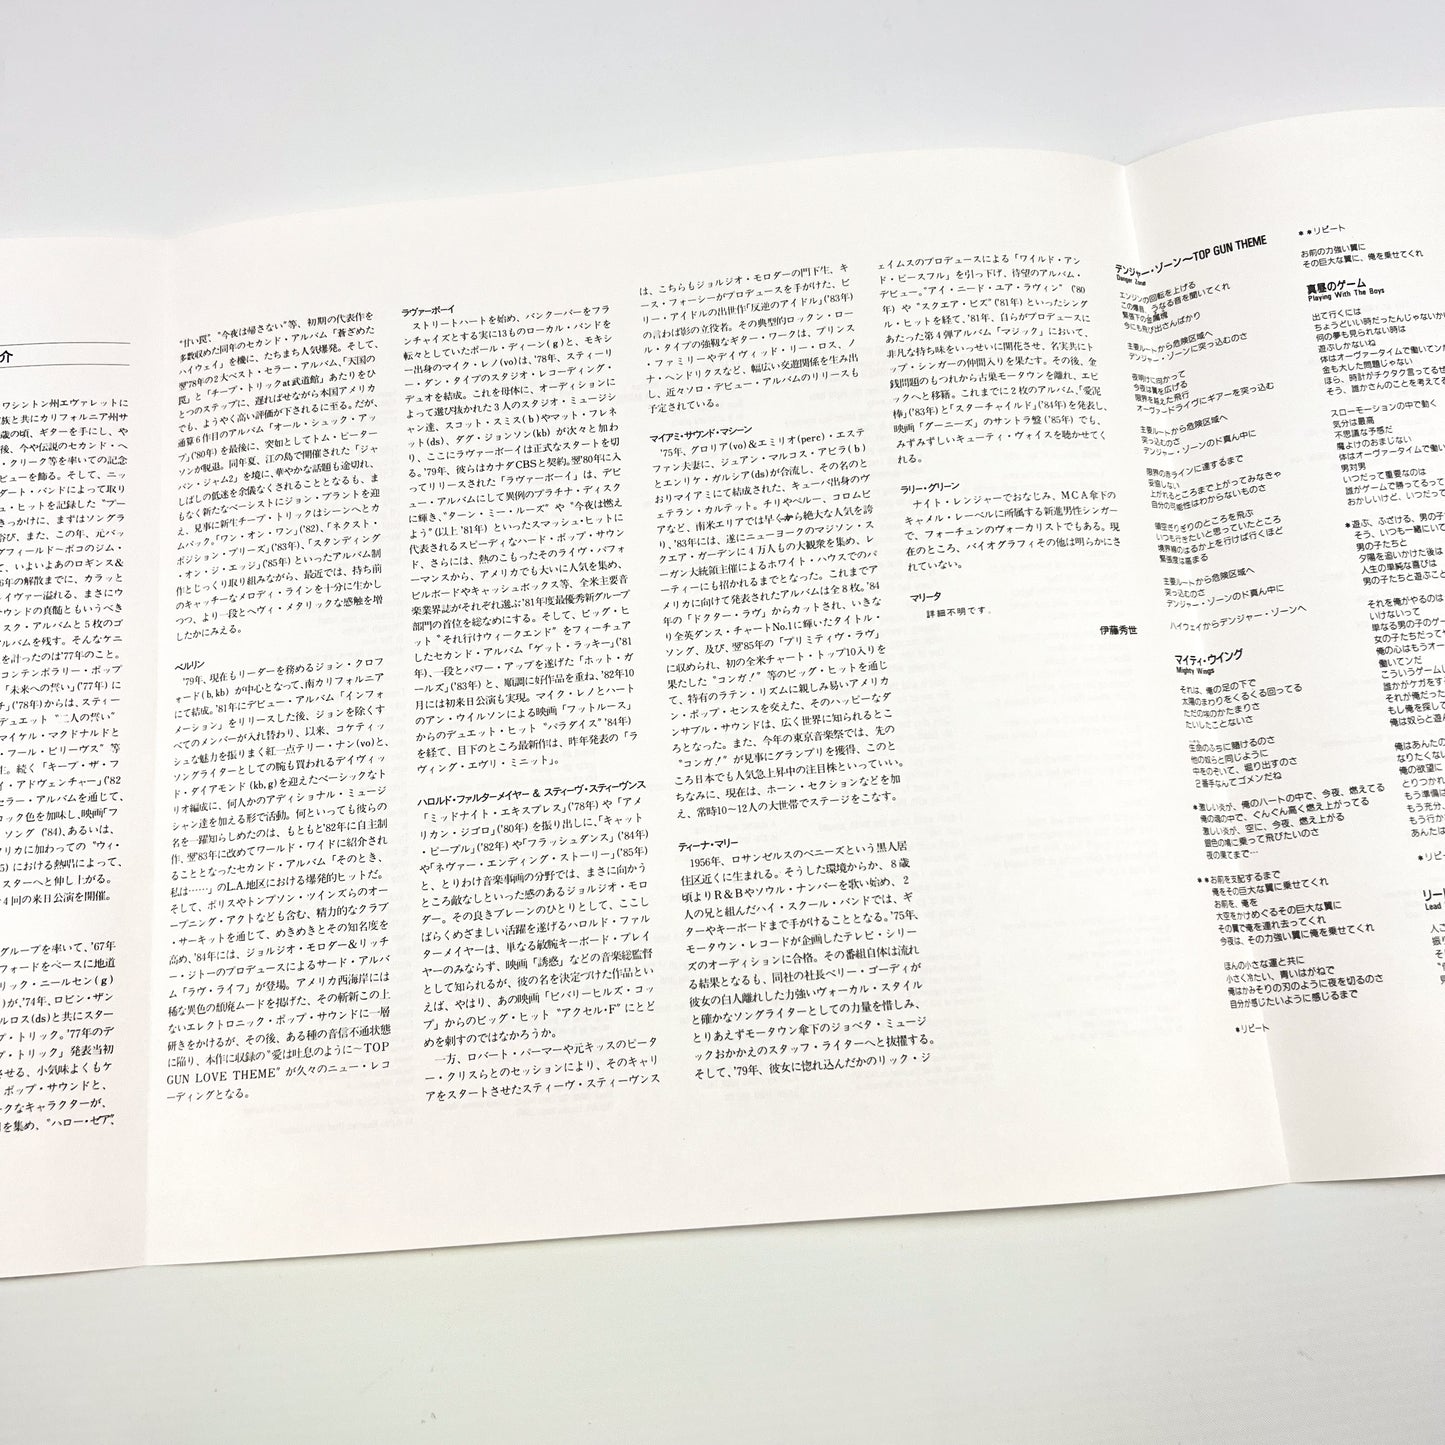 介
ワシントン州エヴァレットに
族と共にカリフォルニア州サ
歳の頃、ギターを手にし、や
後、今や伝説のセカンド・ヘ
・クリーク等を率いての記念
ビューを飾る。そして、ニッ
ダート・バンドによって取り
ュ・ヒットを記録した“プー
きっかけに、まずはソングラ
浴び、また、この年、元バッ
グフィールド=ポコのジム・
て、いよいよあのロギンス&
6年の解散までに、カラッと
イヴァー溢れる、まさにウ
ウンドの真髄ともいうべき
スク・アルバムと5枚のゴ
アルバムを残す。そんなケニ
を計ったのは'77年のこと。
コンテンポラリー・ポップ
「未来への誓い」('77年)に
チ」('78年)からは、スティー
デュエット“二人の誓い”
マイケル・マクドナルドと
・フール・ビリーヴス”等
続く「キープ・ザ・フ
イ・アドヴェンチャー」('82
セラー・アルバムを通じて、
ロック色を加味し、映画「フ
ソング('84)、あるいは、
リカに加わっての“ウィ・
5)における熱唱によって、
スターへと伸し上がる。
4回の来日公演を開催。
グループを率いて、'67年
フォードをベースに地道
リック・ニールセン(g)
)が、'74年、ロビン・ザン
ルロス(ds)と共にスター
プ・トリック。'77年のデ
プ・トリック」発表当初
させる、小気味よくもケ
ポップ・サウンドと、
ークなキャラクターが、
目を集め、“ハロー・ゼア”、
“甘い罠”、“今夜は帰さない”等、初期の代表作を
多数収めた同年のセカンド・アルバム「蒼ざめた
ハイウェイ」を機に、たちまち人気爆発。そして、
翌'78年の2大ベスト・セラー・アルバム、「天国の
罠」と「チープ・トリックat武道館」あたりをひ
とつのステップに、遅ればせながら本国アメリカ
でも、ようやく高い評価が下されるに至る。だが、
通算6作目のアルバム「オール・シュック・アッ
プ」('80年)を最後に、突如としてトム・ピーター
ソンが脱退。同年夏、江の島で開催された「ジャ
パン・ジャム2」を境に、華やかな話題も途切れ、
しばしの低迷を余儀なくされることとなるも、ま
もなく新たなベーシストにジョン・ブラントを迎
え、見事に新生チープ・トリックはシーンへとカ
ムバック。「ワン・オン・ワン」('82)、「ネクスト・
ポジション・プリーズ」('83年)、「スタンディング
・オン・ジ・エッジ」('85年)といったアルバム制
作とじっくり取り組みながら、最近では、持ち前
のキャッチーなメロディ・ラインを十分に生かし
つつ、より一段とヘヴィ・メタリックな感触を増
したかにみえる。
ベルリン
'79年、現在もリーダーを務めるジョン・クロフ
ォード(b, kb)が中心となって、南カリフォルニア
にて結成。'81年にデビュー・アルバム「インフォ
メーション」をリリースした後、ジョンを除くす
べてのメンバーが入れ替わり、以来、コケティッ
シュな魅力を振りまく紅一点テリー・ナン(vo)と、
ソングライターとしての腕も買われるデイヴィッ
ド・ダイアモンド(kb, g)を迎えたベーシックなト
リオ編成に、何人かのアディショナル・ミュージ
シャン達を加える形で活動。何といっても彼らの
名を一躍知らしめたのは、もともと'82年に自主制
作、翌'83年に改めてワールド・ワイドに紹介され
ることとなったセカンド・アルバム「そのとき、
私は……」のL.A.地区における爆発的ヒットだ。
そして、ポリスやトンプソン・ツインズらのオー
プニング・アクトなども含む、精力的なクラブ
・サーキットを通じて、めきめきとその知名度を
高め、'84年には、ジョルジオ・モロダー&リッチ
ー・ジトーのプロデュースによるサード・アルバ
ム「ラヴ・ライフ」が登場。アメリカ西海岸には
稀な異色の頽廃ムードを掲げた、その斬新この上
ないエレクトロニック・ポップ・サウンドに一層
研きをかけるが、その後、ある種の音信不通状態
に陥り、本作に収録の“愛は吐息のように〜TOP
GUN LOVE THEME”が久々のニュー・レコ
ーディングとなる。
ラヴァーボーイ
ストリートハートを始め、バンクーバーをフラ
ンチャイズとする実に13ものローカル・バンドを
転々としていたポール・ディーン(g)と、モキシ
ー出身のマイク・レノ(vo)は、'78年、スティーリ
ー・ダン・タイプのスタジオ・レコーディング・
デュオを結成。これを母体に、オーディションに
よって選び抜かれた3人のスタジオ・ミュージシ
ャン達、スコット・スミス(b)やマット・フレネ
ット(ds)、ダグ・ジョンソン(kb)が次々と加わ
り、ここにラヴァーボーイは正式なスタートを切
る。'79年、彼らはカナダCBSと契約。翌'80年に入
ってリリースされた「ラヴァーボーイ」は、デビ
ュー・アルバムにして異例のプラチナ・ディスク
に輝き、“ターン・ミー・ルーズ”や“今夜は燃え
よう”(以上'81年)といったスマッシュ・ヒットに
代表されるスピーディなハード・ポップ・サウン
ド、さらには、熱のこもったそのライヴ・パフォ
ーマンスから、アメリカでも大いに人気を集め、
ビルボードやキャッシュボックス等、全米主要音
楽業界誌がそれぞれ選ぶ'81年度最優秀新グループ
部門の首位を総なめにする。そして、ビッグ・ヒ
ット“それ行けウィークエンド”をフィーチュア
したセカンド・アルバム「ゲット・ラッキー」('81
年)、一段とパワー・アップを遂げた「ホット・ガ
ールズ」('83年)と、順調に好作品を重ね、'82年10
月には初来日公演も実現。マイク・レノとハート
のアン・ウイルソンによる映画「フットルース」
からのデュエット・ヒット“パラダイス”'84年)
を経て、目下のところ最新作は、昨年発表の「ラ
ヴィング・エヴリ・ミニット」。
ハロルド・ファルターメイヤー & スティーヴ・スティーヴンス
「ミッドナイト・エキスプレス」('78年)や「アメ
リカン・ジゴロ」('80年)を振り出しに、「キャット
・ピープル」('82年)や「フラッシュダンス」('84年)
や「ネヴァー・エンディング・ストーリー」('85年)
と、とりわけ音楽事画の分野では、まさに向かう
ところ敵なしといった感のあるジョルジオ・モロ
ダー。その良きブレーンのひとりとして、ここし
ばらくめざましい活躍を遂げるハロルド・ファル
ターメイヤーは、単なる敏腕キーボード・プレイ
ヤーのみならず、映画「誘惑」などの音楽総監督
として知られるが、彼の名を決定づけた作品とい
えば、やはり、あの映画「ビバリーヒルズ・コッ
プ」からのビッグ・ヒット“アクセル・F”にとど
めを刺すのではなかろうか。
一方、ロバート・パーマーや元キッスのピータ
ー・クリスらとのセッションにより、そのキャリ
アをスタートさせたスティーヴ・スティーヴンス
は、こちらもジョルジオ・モロダーの門下生、キ
ース・フォーシーがプロデュースを手がけた、ビ
リー・アイドルの出世作「反逆のアイドル」('83年)
の言わば影の立役者。その典型的ロックン・ロー
ル・タイプの強靱なギター・ワークは、プリンス
・ファミリーやデイヴィッド・リー・ロス、ノ
ナ・ヘンドリクスなど、幅広い交遊関係を生み出
し、近々ソロ・デビュー・アルバムのリリースも
予定されている。
マイアミ・サウンド・マシーン
'75年、グロリア(vo)&エミリオ(perc)・エステ
ファン夫妻に、ジュアン・マルコス・アビラ(b)
とエンリケ・ガルシア(ds)が合流し、その名のと
おりマイアミにて結成された、キューバ出身のヴ
ェテラン・カルテット。チリやペルー、コロムビ
アなど、南米エリアでは早くから絶大な人気を誇
り、'83年には、遂にニューヨークのマジソン・ス
クエア・ガーデンに4万人もの大観衆を集め、レ
ーガン大統領主催によるホワイト・ハウスでのパ
ーティーにも招かれるまでとなった。これまでア
メリカに向けて発表されたアルバムは全8枚。'84
年の「ドクター・ラヴ」からカットされ、いきな
り全英ダンス・チャートNo.1に輝いたタイトル・
ソング、及び、翌'85年の「プリミティヴ・ラヴ」
に収められ、初の全米チャート・トップ10入りを
果たした“コンガ！”等のビッグ・ヒットを通じ
て、特有のラテン・リズムに親しみ易いアメリカ
ン・ポップ・センスを交えた、そのハッピーなダ
ンサブル・サウンドは、広く世界に知られるとこ
ろとなった。また、今年の東京音楽祭では、先の
“コンガ！”が見事にグランプリを獲得、このと
ころ日本でも人気急上昇中の注目株といっていい。
ちなみに、現在は、ホーン・セクションなどを加
え、常時10〜12人の大世帯でステージをこなす。
ティーナ・マリー
1956年、ロサンゼルスのベニーズという黒人居
住区近くに生まれる。そうした環境からか、8歳
頃よりR&Bやソウル・ナンバーを歌い始め、2
人の兄と組んだハイ・スクール・バンドでは、ギ
ターやキーボードまで手がけることとなる。'75年、
モータウン・レコードが企画したテレビ・シリー
ズのオーディションに合格。その番組自体は流れ
る結果となるも、同社の社長ベリー・ゴーディが
彼女の白人離れした力強いヴォーカル・スタイル
と確かなソングライターとしての力量を惜しみ、
とりあえずモータウン傘下のジョベタ・ミュージ
ックおかかえのスタッフ・ライターへと抜擢する。
そして、'79年、彼女に惚れ込んだかのリック・ジ
ェイムスのプロデュースによる「ワイルド・アン
ド・ピースフル」を引っ下げ、待望のアルバム・
デビュー。“アイ・ニード・ユア・ラヴィン”('80
年)や“スクエア・ビズ”('81年)といったシング
ル・ヒットを経て、'81年、自らがプロデュースに
あたった第4弾アルバム「マジック」において、
非凡な持ち味をいっせいに開花させ、名実共にト
ップ・シンガーの仲間入りを果たす。その後、金
銭問題のもつれから古巣モータウンを離れ、エピ
ックへと移籍。これまでに2枚のアルバム、「愛泥
棒」('83年)と「スターチャイルド」('84年)を発表し、
映画「グーニーズ」のサントラ盤('85年)でも、
みずみずしいキューティ・ヴォイスを聴かせてく
れる。
ラリー・グリーン
ナイト・レンジャーでおなじみ、MCA傘下の
キャメル・レーベルに所属する新進男性シンガー
で、フォーチュンのヴォーカリストでもある。現
在のところ、バイオグラフィその他は明らかにさ
れていない。
マリータ
詳細不明です。
伊藤秀世
デンジャー・ゾーン〜TOP GUN THEME
Danger Zone
エンジンの回転を上げる
この爆音、うなる音を聞いてくれ
緊張下の金属塊
今にも飛び出さんばかり
主要ルートから危険区域へ
デンジャー・ゾーンに突っ込むのさ
夜明けに向かって
今夜は翼を広げる
限界を越えた飛行
オーヴァードライヴにギアーを突っ込む
主要ルートから危険区域へ
突っ込むのさ
デンジャー・ゾーンのド真ん中に
限界の赤ラインに達するまで
妥協しない
上がれるところまで上がってみなきゃ
自分の可能性はわからないものさ
破空ぎりぎりのところを飛ぶ
いつも行きたいと思っていたところ
境界線のはるか上を行けば行くほど
緊張度は高まる
主要ルートから危険区域へ
突っ込むのさ
デンジャー・ゾーンのド真ん中に
ハイウェイからデンジャー・ゾーンへ
マイティ・ウイング
Mighty Wings
それは、俺の足の下で
太陽のまわりをぐるぐる回ってる
ただの埃のかたまりさ
たいしたことないさ
生命のふちに賭けるのさ
他の奴らと同じように
中をのぞいて、掘り出すのさ
2番手なんてゴメンだね
＊激しい炎が、俺のハートの中で、今夜、燃えてる
俺の魂の中で、ぐんぐん高く燃え上がってる
激しい炎が、空に、今夜、燃え上がる
銀色の鳩に乗って飛びたいのさ
夜の果てまで…
＊＊お前を支配するまで
俺をその巨大な翼に乗せてくれ
お前を、俺を
大空をかけめぐるその巨大な翼に
その翼で俺を連れ去ってくれ
今夜は、その力強い翼に俺を乗せてくれ
ほんの小さな運と共に
小さく冷たい、青いはがねで
俺はかみそりの刃のように夜を切るのさ
自分が感じたいように感じるまで
＊リピート
＊＊リピート
お前の力強い翼に
その巨大な翼に、俺を乗せてくれ
真昼のゲーム
Playing With The Boys
出て行くには
ちょうどいい時だったんじゃないか
何の夢も見られない時は
遊ぶしかないね
体はオーヴァータイムで働いてンだ
金も大した問題じゃない
ほら、時計がチクタク言ってるぜ
そう、誰かさんのことを考えてる
スローモーションの中で動く
気分は最高
不思議な予感だ
魔よけのおまじない
体はオーヴァータイムで働い
男対男
いつだって重要なのは
誰がゲームで勝ってるって
おかしいけど、いつだって
＊遊ぶ、ふざける、男の子
そう、いつも一緒にいて
男の子たちと
夕陽を追いかけた後は
人生の単純な喜びは
男の子たちと遊ぶこと
それを俺がやるのは
いけないって
単なる男の子のゲー
女の子たちだって
俺の心はもうオー
働いてンだ
こういうゲーム
誰かがケガをする
それが俺だった
もし俺を探して
俺は奴らと遊
俺はあんたの
なりたくない
俺の欲望に
とりつかれ
もう準備は
もう充分、
もう行か
あんたは
＊リピ
リー
Lead
人こ
振り
そ